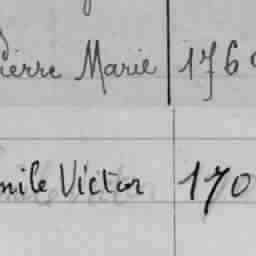 Pierre Marie 176
mile Victor 170